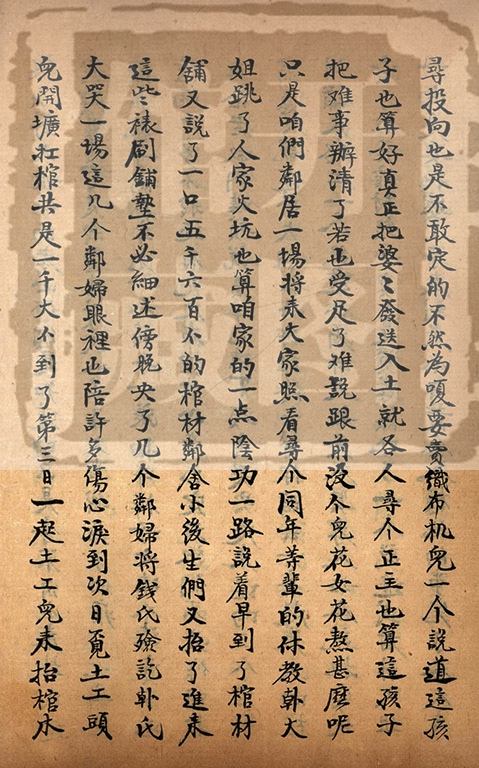 尋投向也是不敢定的不然為嗄要賣織布机兒一个說道這孩
子也算好真正把婆〻發送入土就各人尋个正主也算這孩子
把难事辦清了若也受足了难說跟前没个兒花女花熬甚麽呢
只是咱們鄰居一場將来大家照看尋个同年等輩的休教韓大
姐跳了人家火坑也算咱家的一点陰功一路說着早到了棺材
舖又說了一口五千六百个的棺材鄰舍小後生們又抬了進来
這些裱刷舖墊不必細述傍晚央了几个鄰婦將钱氏殮訖韓氏
大哭一場這几个鄰婦眼裡也陪許多傷心淚到次日覓土工頭
兒開壙扛棺共是一千大个到了第三日一起土工兒来抬棺木